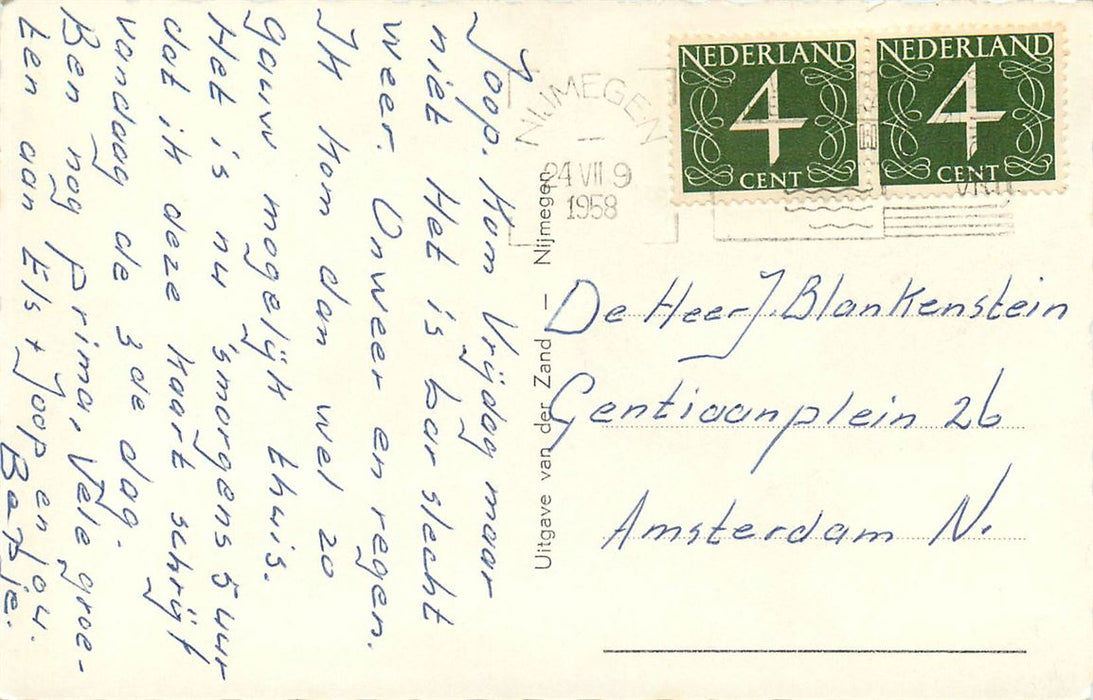 Joop. Kom Vrijdag maar
niet Het is bar slecht
weer. Onweer en regen.
Ik kom dan wel zo
gauw mogelijk thuis.
Het is nu 'smorgens 5 uur
dat ik deze kaart schrijf
vandaag de 3de dag.
Ben nog prima, Vele groe-
ten aan Els + Joop en jou.
Bertje.
Uitgave van der Zand — Nijmegen
NIJMEGEN
24 VII 9
1958
NEDERLAND
4
CENT
NEDERLAND
4
CENT
De Heer J. Blankenstein
Gentiaanplein 26
Amsterdam N.